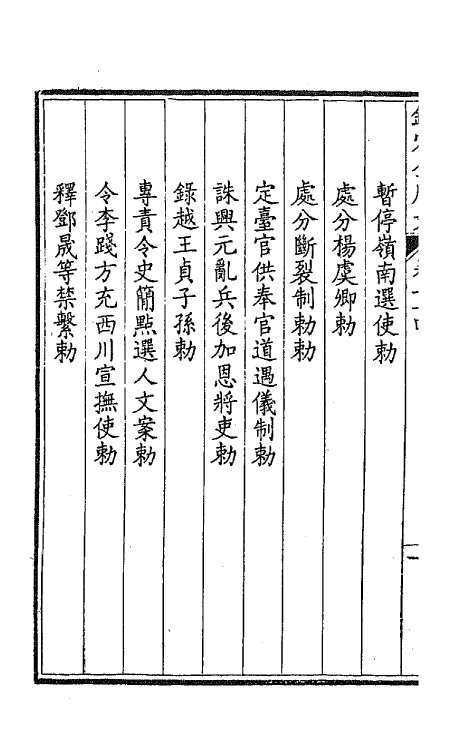 暫停嶺南選使勅
處分楊虞卿勅
處分斷裂制勅勅
定臺官供奉官道遇儀制勅
誅興元亂兵後加恩將吏勅
錄越王貞子孫勅
專責令史簡點選人文案勅
令李踐方充西川宣撫使勅
釋鄧晟等禁繫勅